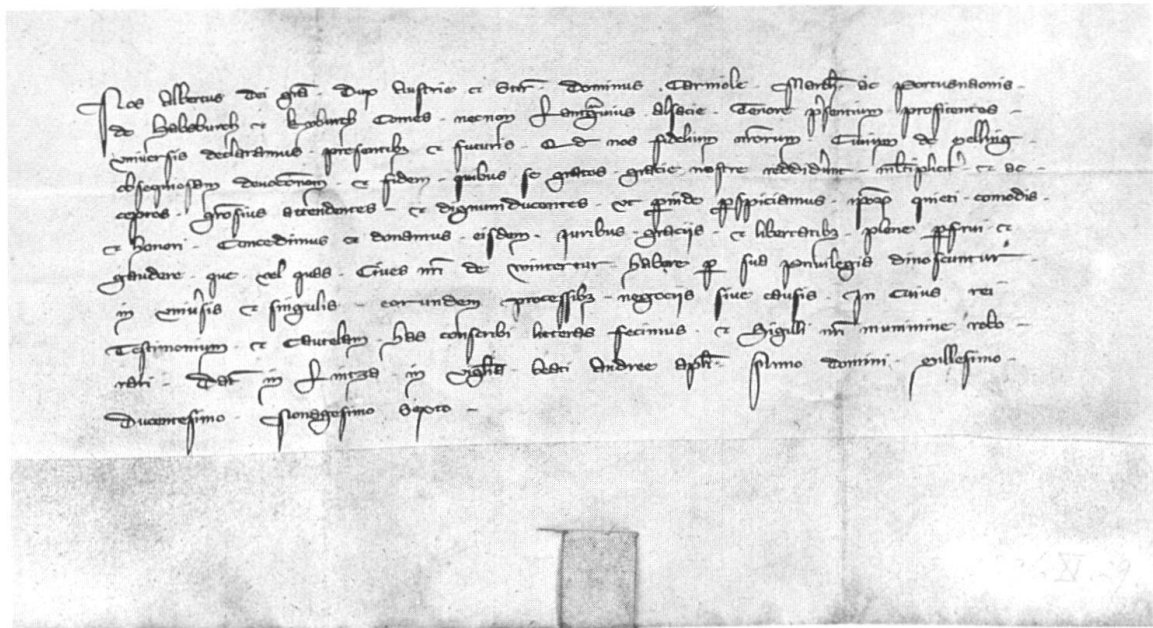 Nos Albertus dei gr̄a Dux Austrie et Stir̄ . Dominus . Carniole . March̄ . ac Portusnaonis .
de Habsburch et Kyburch Comes . necnon Lantgrauius Alsacie . Tenore pr̄sentium profitentes
vniuersis declaramus presentibꝫ et futuris . Qd nos fidelium nr̄orum Ciuium de Melling
obsequiosam deuoc̄onem . et fidem . quibus se gratos gracie nostre reddidēr̄t . ml̄tiplicit̄ et ac-
ceptos . gr̄osius attendentes . et dignum ducentes . vt ꝓinde ꝓspiciamus . ip̄oꝝ quieti . comodis .
et honori . Concedimus et donamus . eisdem . juribus . gracijs . et libertatibꝫ . plene ꝑfrui et
gaudere . que vel quas . Ciues nr̄i de Wintertur . habere ꝑ sua priuilegia dinoscuntur .
in vniu̓sis et singulis . eorundem processibꝫ . negocijs siue causis . In cuius rei
Testimonium . et Cautelam . has conscribi litteras fecimus . et Sigilli nr̄i munimine robo-
rari . Dat̄ in Lintza . in vigil̄ia beati Andree apl̄i . Anno domini . Millesimo .
Ducentesimo . Nonagesimo Sexto .
IX . 9